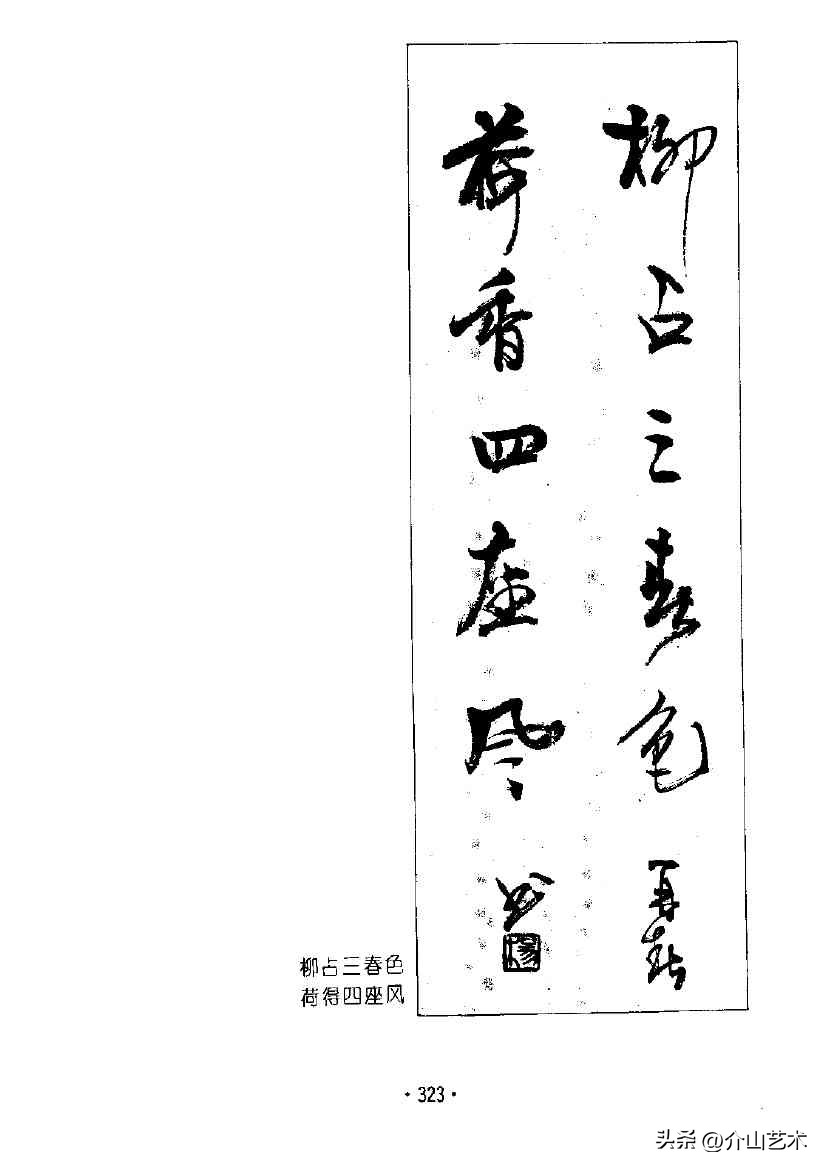 柳占三春色
再春
荷香四座风
书
柳占三春色
荷得四座风
·323·
头条 @介山艺术